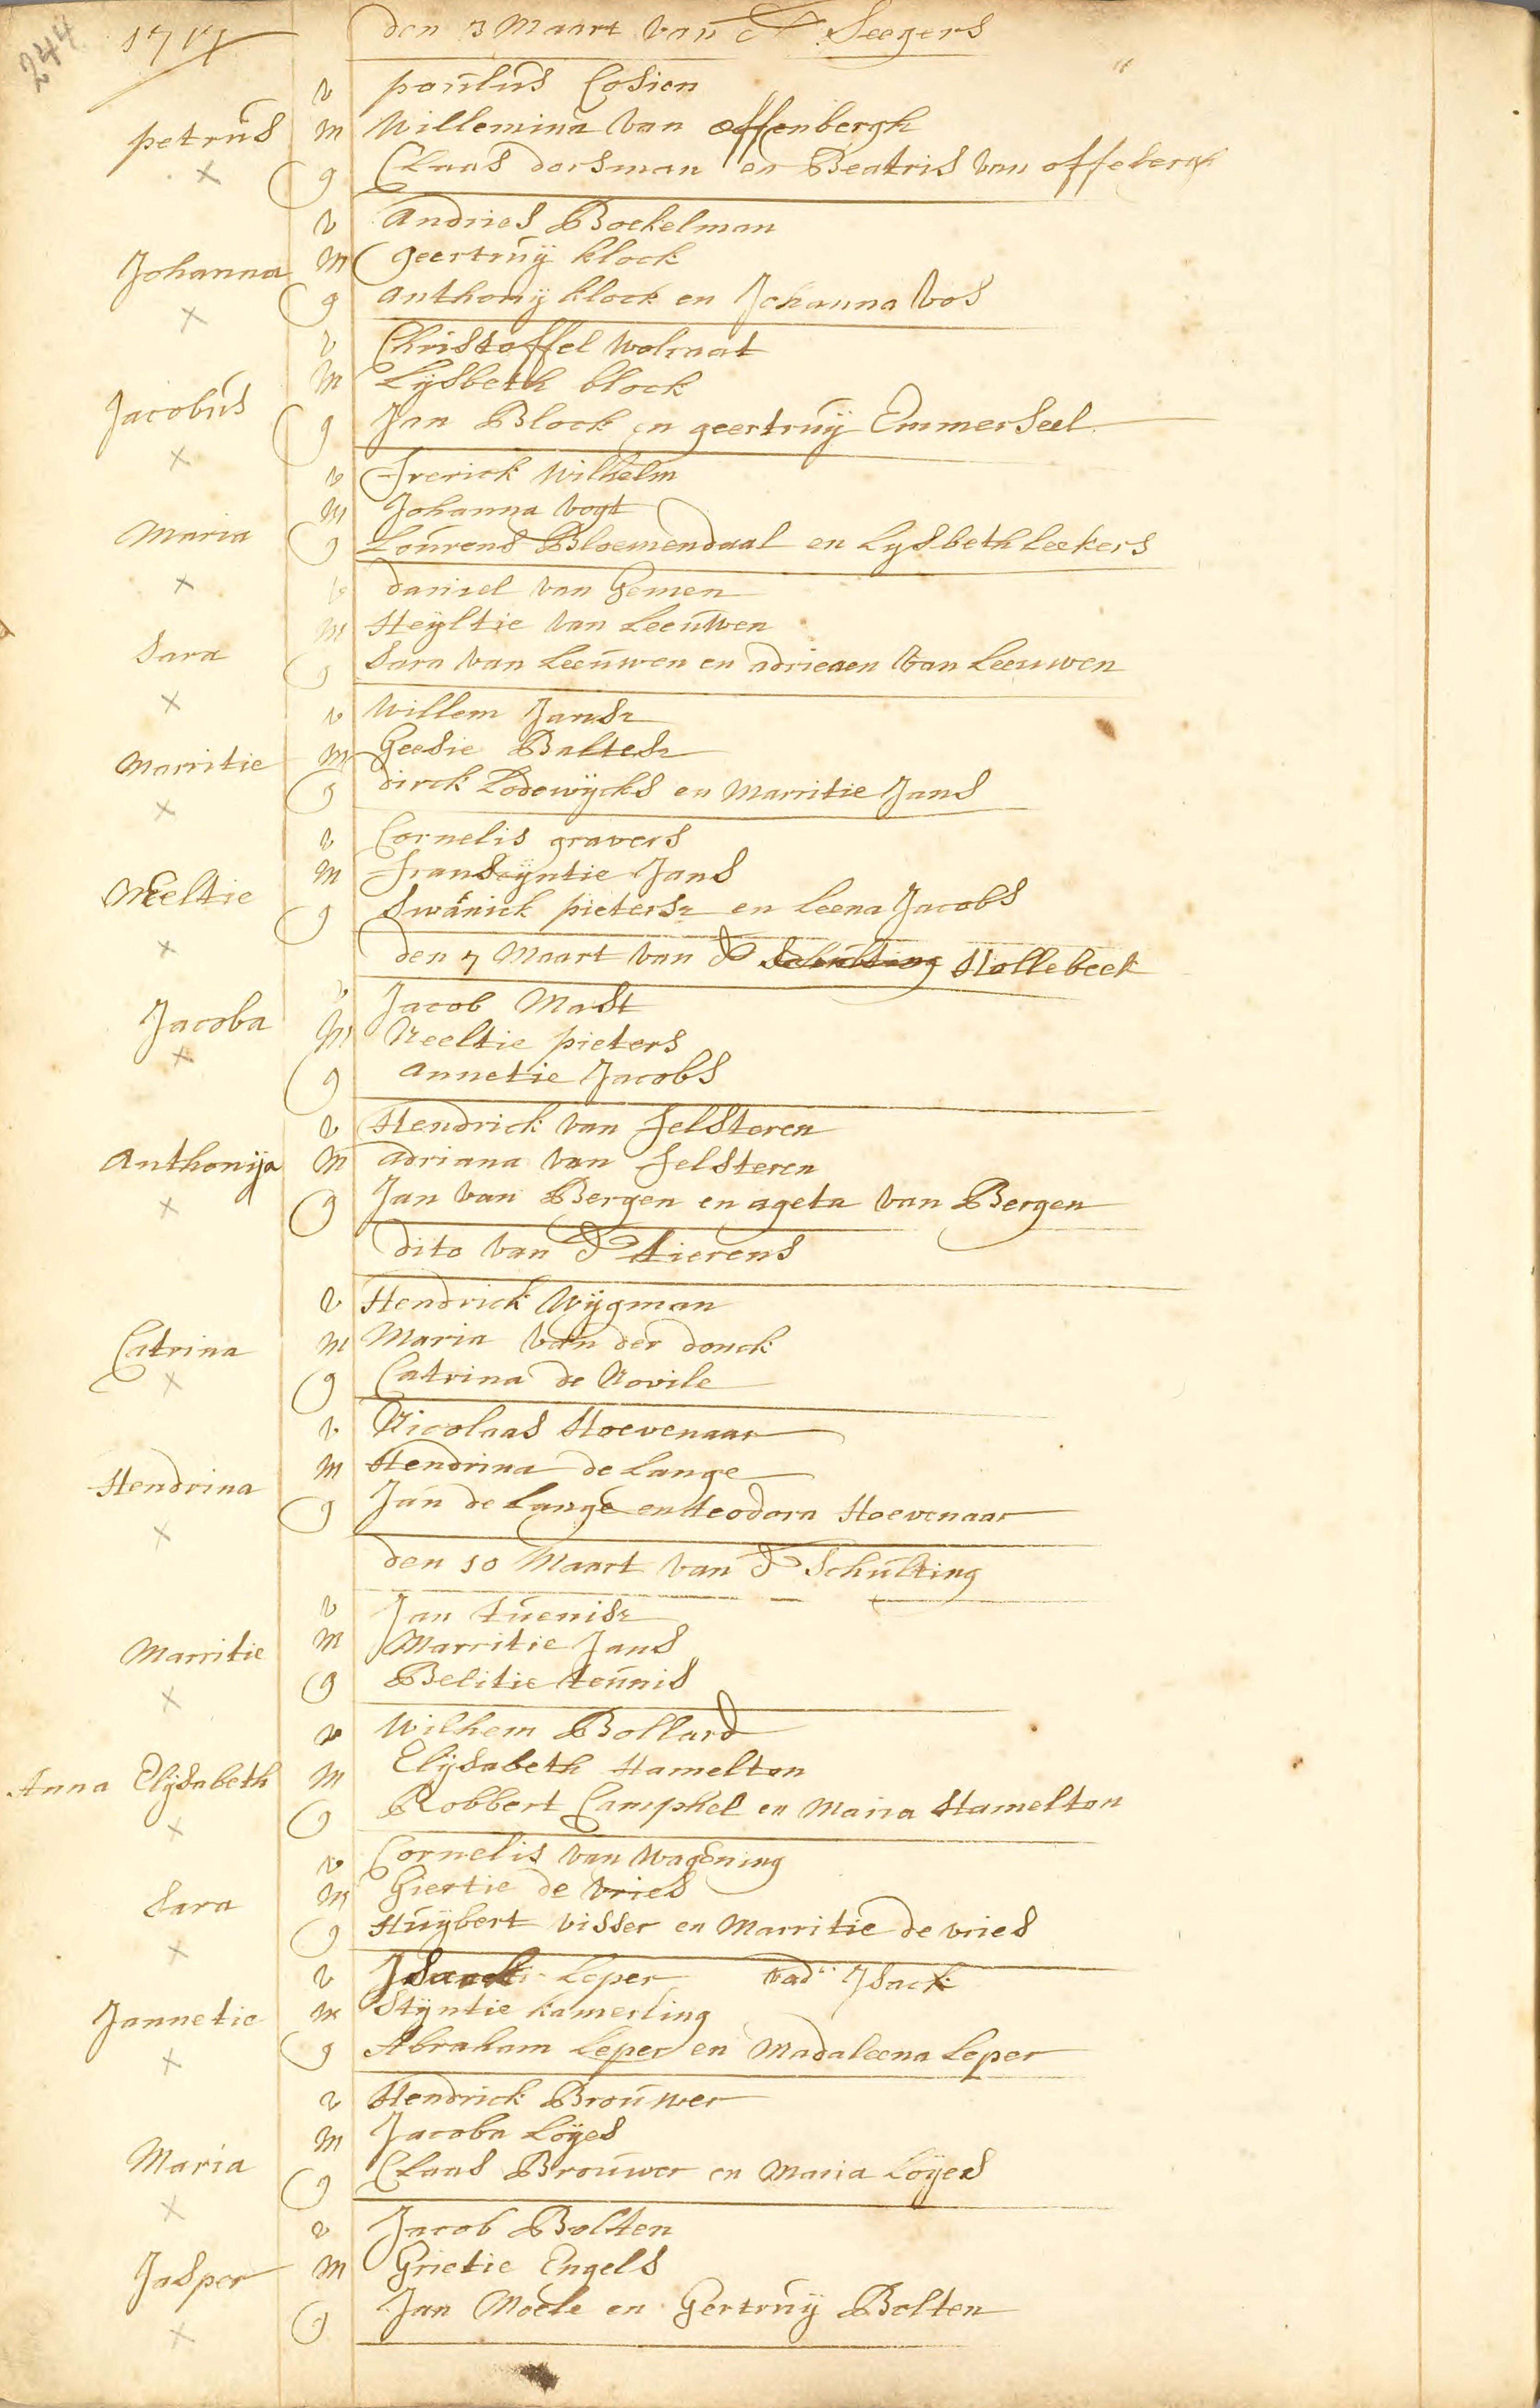 244
den 3 Maart van Ds Seegers
v paulus Cosien
petrus m Willemina van offenbergh
g Claas dorsman en Beatris van offeberg
v Andries Boekelman
Johanna m geertruij klock
g Anthonij klock en Johanna Vos
v Christoffel Wolmat
Jacobus m Lijsbeth block
g Jan Block en geertruij Emmerseel
v Frerick Wilhelm
Maria m Johanna Vogt
g Lourens Bloemendaal en Lijsbeth Leekers
v daniel van Gemen
Sara m Heijltie van Leeuwen
g Sara van Leeuwen en adrieaen van Leeuwen
v Willem Jansz
Marritie m Geesie Baltesz
g dirck Lodewijcks en Marritie Jans
v Cornelis gravers
Neeltie m Franseijntie Jans
g Swaniek pietersz en Leena Jacobs
den 7 Maart van Ds Schulting Hollebeek
v Jacob Mast
Jacoba m Neeltie pieters
g Annetie Jacobs
v Hendrick van Felsteren
Anthonija m Adriana van Felsteren
g Jan van Bergen en ageta van Bergen
dito van Ds Tierens
v Hendrick Wijgman
Catrina m Maria van der donck
g Catrina de Novile
v Nicolaas Hoevenaar
Hendrina m Hendrina de Lange
g Jan de Lange en teodora Hoevenaar
den 10 Maart van Ds Schulting
v Jan tuenisz
Marritie m Marritie Jans
g Belitie teunis
v Wilhem Bollard
Anna Elijsabeth m Elijsabeth Hamelton
g Robbert Camphel en Maria Hamelton
v Cornelis van Wagening
Sara m Giertie de vries
g Huijbert visser en Marritie de vries
v Leper vad Isack
Jannetie m Stijntie kamerling
g Abraham Leper en Madaleena Leper
v Hendrick Brouwer
Maria m Jacoba Loijes
g Claas Brouwer en Maria Loijes
v Jacob Bolten
Jasper m Grietie Engels
g Jan Moele en Gertruij Bolten